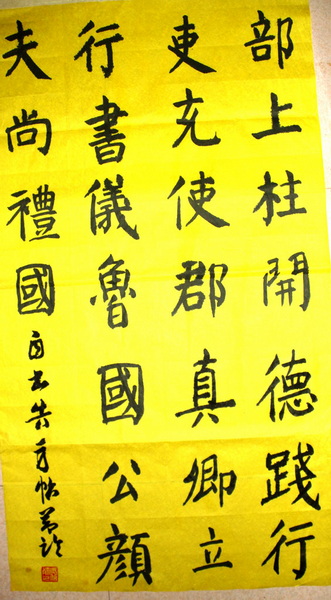 部上柱開德踐行
吏充使郡真卿立
行書儀魯國公顏
夫尚禮國 自书告身帖